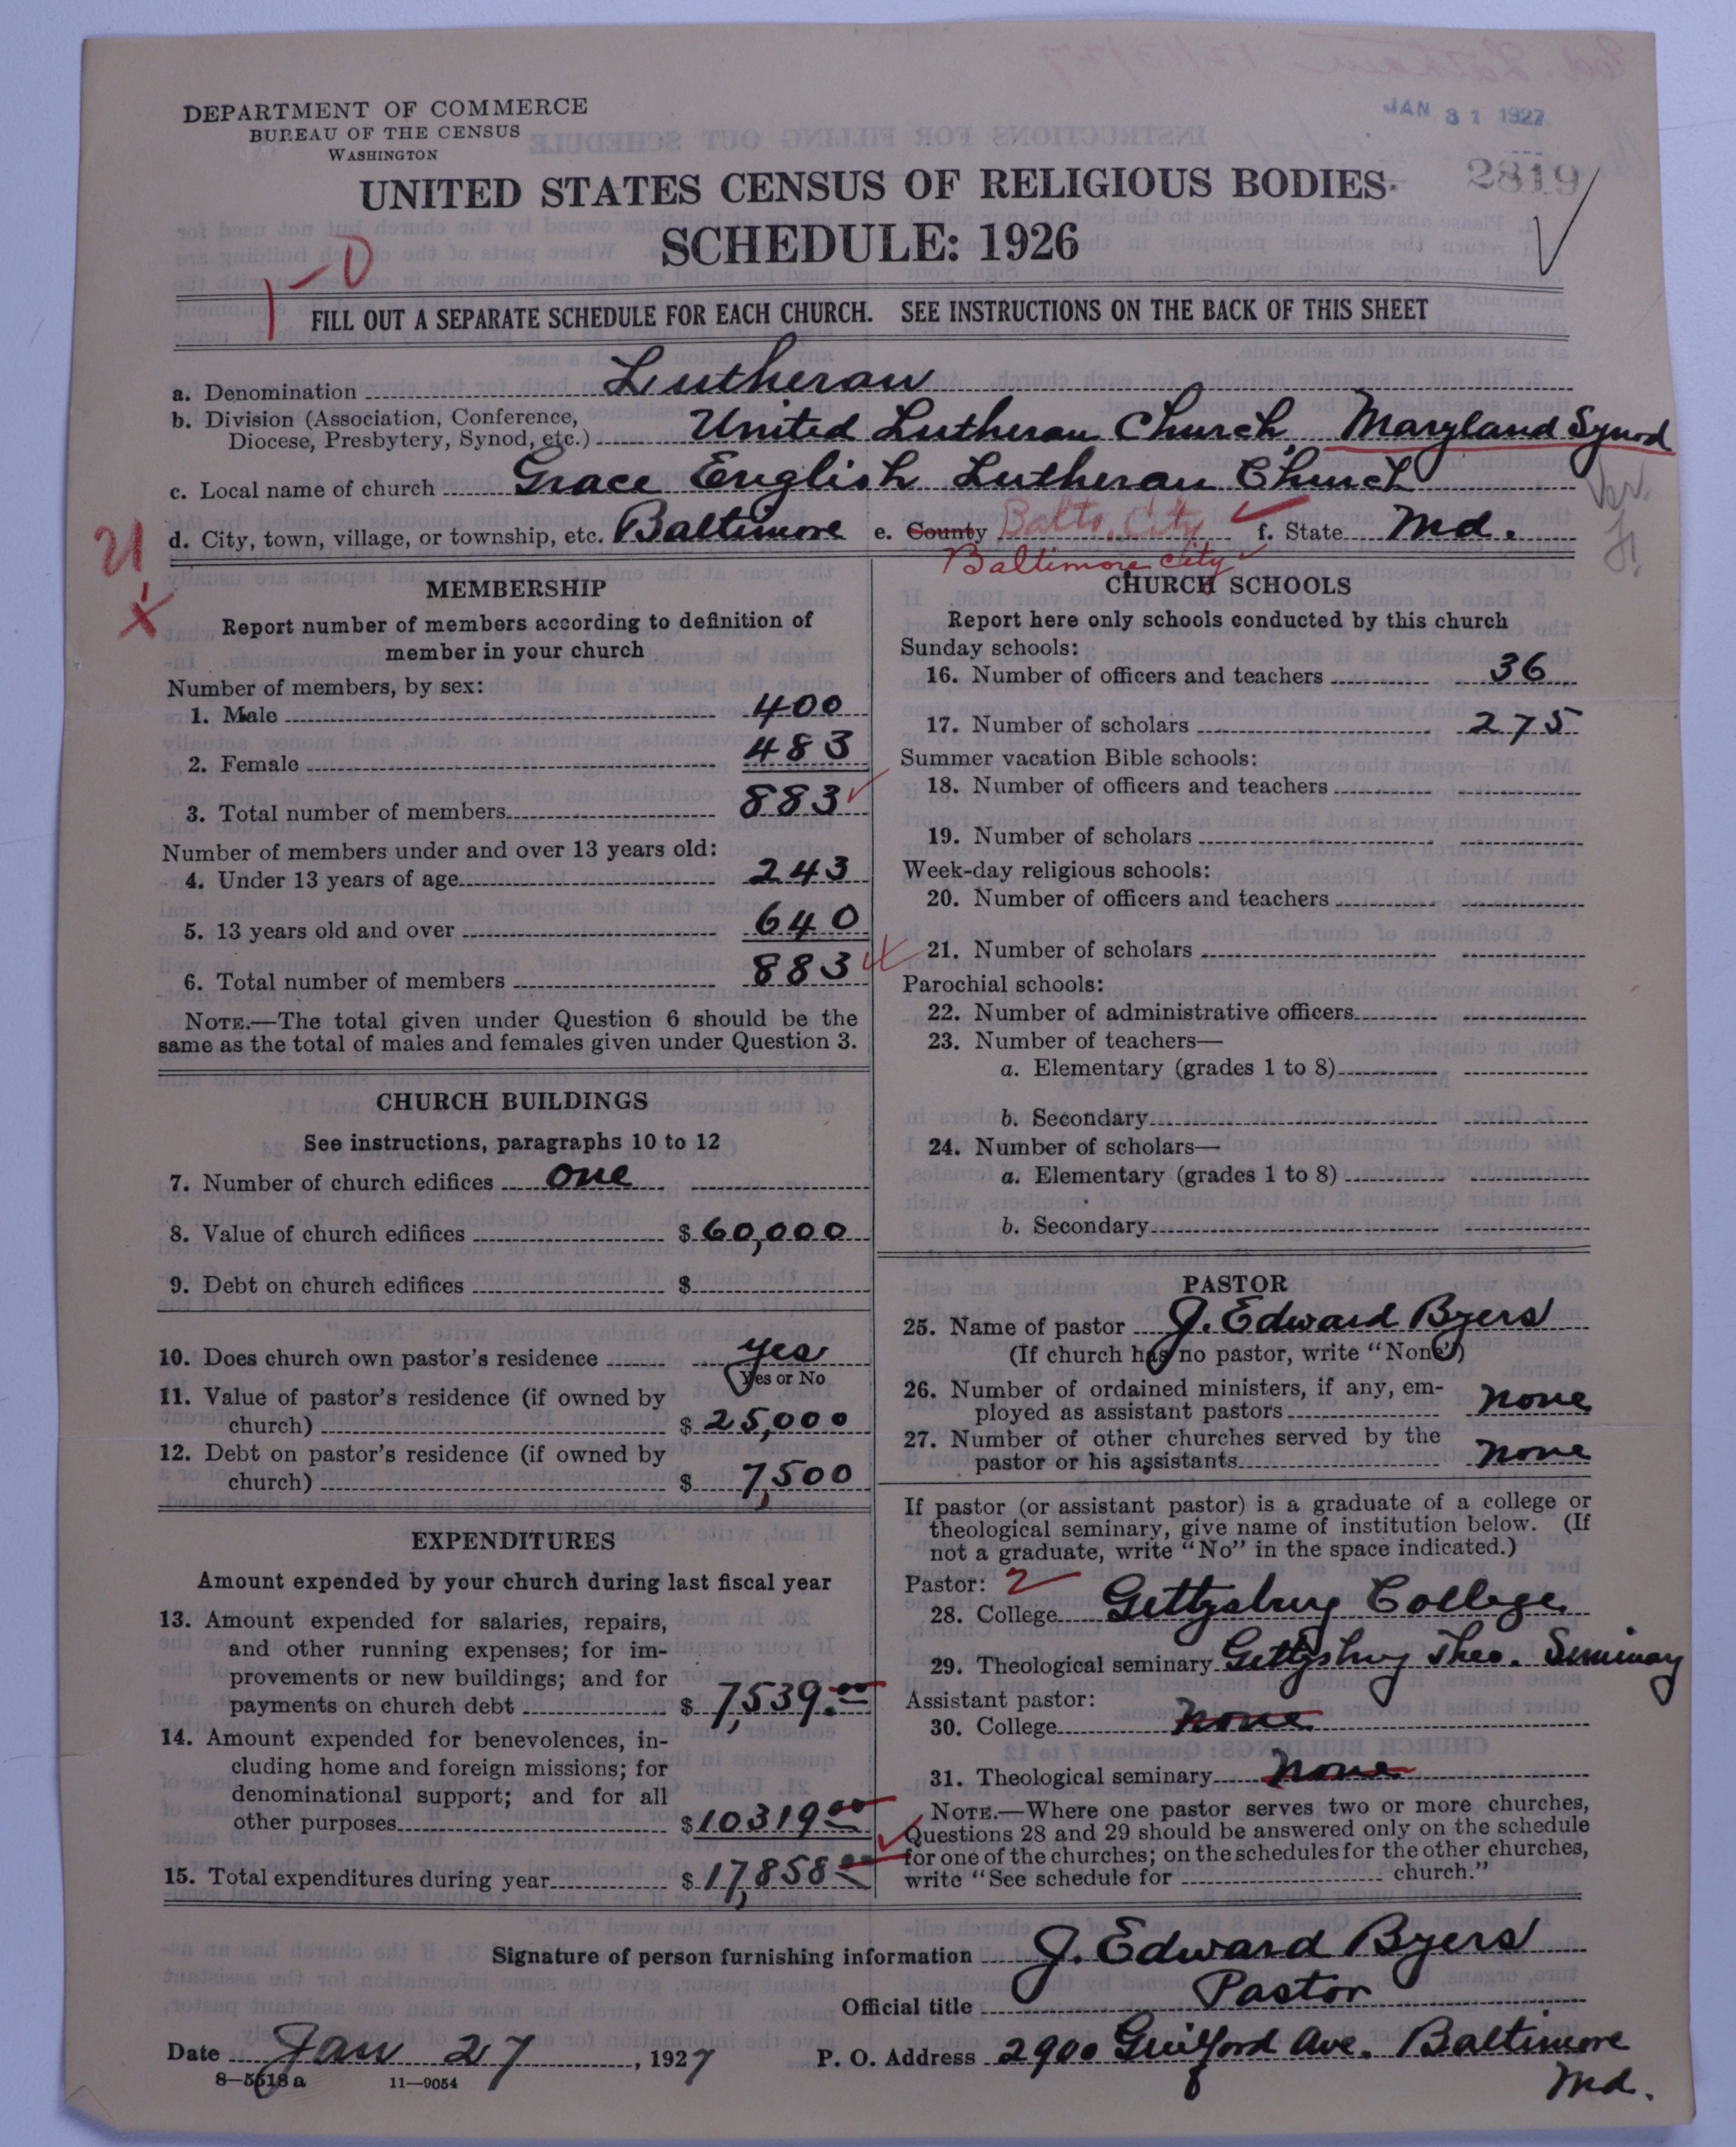 JAN 31 1927
DEPARTMENT OF COMMERCE
BUREAU OF THE CENSUS
WASHINGTON
2819
UNITED STATES CENSUS OF RELIGIOUS BODIES
SCHEDULE: 1926
1-0
FILL OUT A SEPARATE SCHEDULE FOR EACH CHURCH. SEE INSTRUCTIONS ON THE BACK OF THIS SHEET
a. Denomination Lutheran
b. Division (Association, Conference,
Diocese, Presbytery, Synod, etc.) United Lutheran Church, Maryland Synod
c. Local name of church Grace English Lutheran Church
d. City, town, village, or township, etc. Baltimore e. County Balto. City f. State Md.
Baltimore City
21
X
MEMBERSHIP
Report number of members according to definition of
member in your church
Number of members, by sex:
1. Male 400
2. Female 483
3. Total number of members 883
Number of members under and over 13 years old:
4. Under 13 years of age 243
5. 13 years old and over 640
6. Total number of members 883
NOTE.—The total given under Question 6 should be the
same as the total of males and females given under Question 3.
CHURCH BUILDINGS
See instructions, paragraphs 10 to 12
7. Number of church edifices one
8. Value of church edifices $ 60,000
9. Debt on church edifices $
10. Does church own pastor's residence yes
Yes or No
11. Value of pastor's residence (if owned by
church) $ 25,000
12. Debt on pastor's residence (if owned by
church) $ 7,500
EXPENDITURES
Amount expended by your church during last fiscal year
13. Amount expended for salaries, repairs,
and other running expenses; for im-
provements or new buildings; and for
payments on church debt $ 7,539.00
14. Amount expended for benevolences, in-
cluding home and foreign missions; for
denominational support; and for all
other purposes $ 10319 00
15. Total expenditures during year $ 17,858 00
CHURCH SCHOOLS
Report here only schools conducted by this church
Sunday schools:
16. Number of officers and teachers 36
17. Number of scholars 275
Summer vacation Bible schools:
18. Number of officers and teachers
19. Number of scholars
Week-day religious schools:
20. Number of officers and teachers
21. Number of scholars
Parochial schools:
22. Number of administrative officers
23. Number of teachers—
a. Elementary (grades 1 to 8)
b. Secondary
24. Number of scholars—
a. Elementary (grades 1 to 8)
b. Secondary
PASTOR
25. Name of pastor J. Edward Byers
(If church has no pastor, write "None")
26. Number of ordained ministers, if any, em-
ployed as assistant pastors none
27. Number of other churches served by the
pastor or his assistants none
If pastor (or assistant pastor) is a graduate of a college or
theological seminary, give name of institution below. (If
not a graduate, write "No" in the space indicated.)
Pastor: 2
28. College Gettysburg College
29. Theological seminary Gettysburg Theo. Seminary
Assistant pastor:
30. College none
31. Theological seminary none
NOTE.—Where one pastor serves two or more churches,
Questions 28 and 29 should be answered only on the schedule
for one of the churches; on the schedules for the other churches,
write "See schedule for church."
Signature of person furnishing information J. Edward Byers
Official title Pastor
Date Jan 27, 1927 P. O. Address 2900 Guilford Ave. Baltimore
Md.
8—5618 a 11—9054